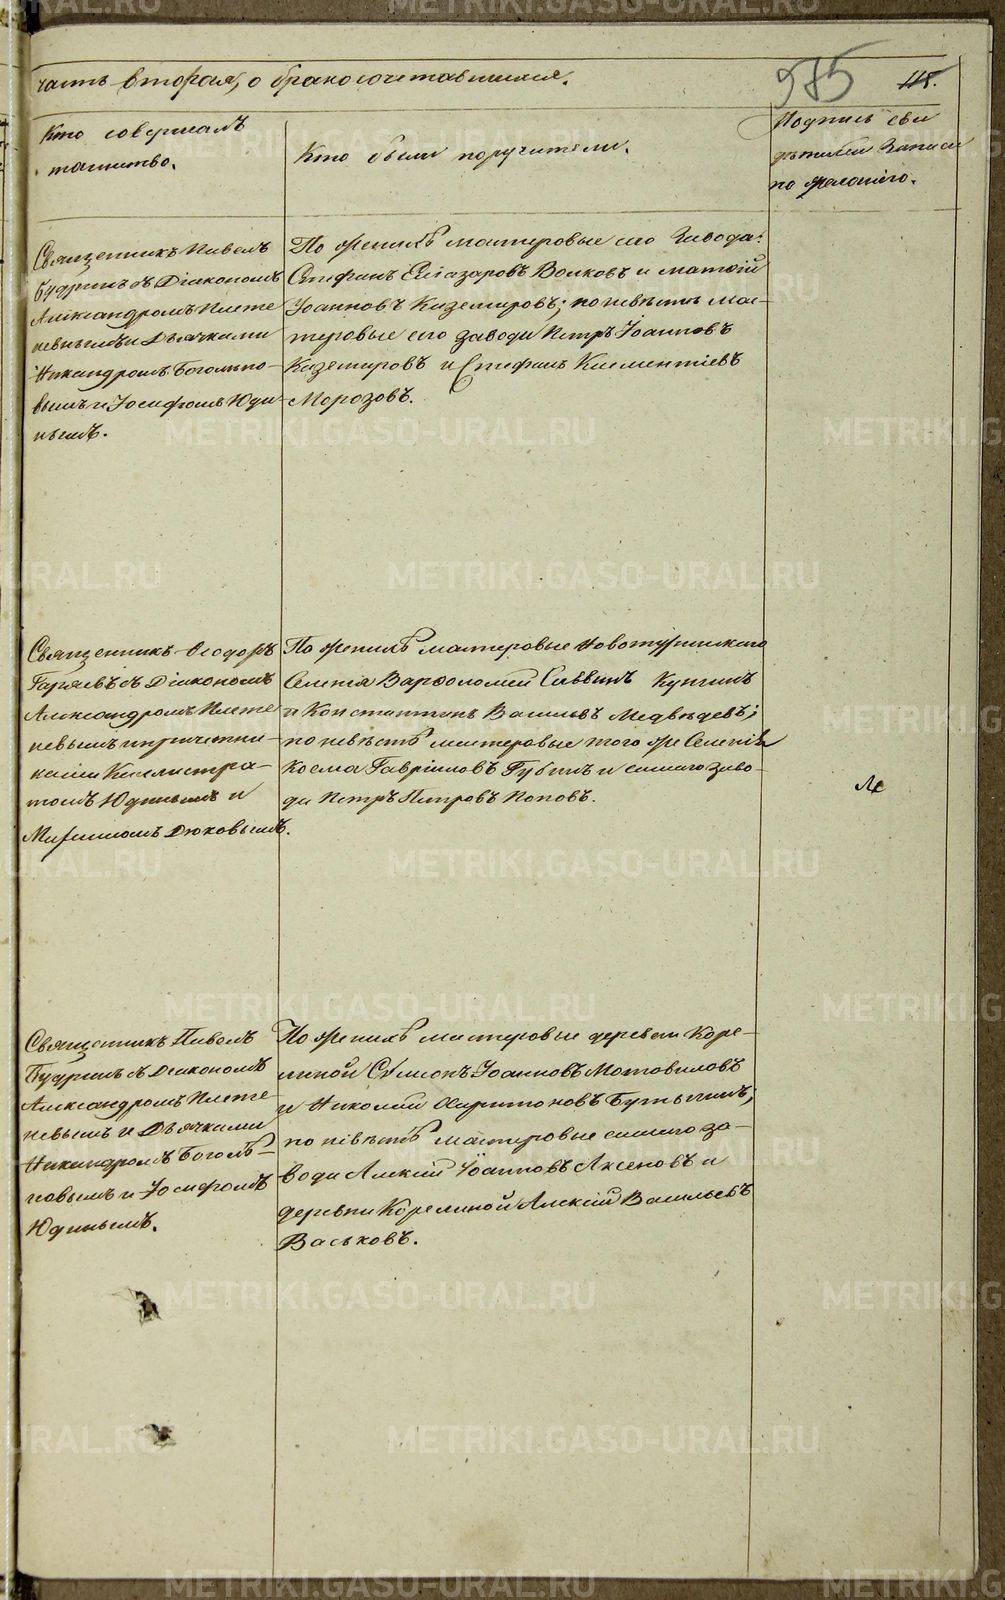 часть вторая, о бракосочетавшихся.
985
115.
Кто совершалъ
таинство.
Кто были поручители.
Подпись сви
дѣтелей записи
по желанію.
Священникъ Павелъ
Будринъ съ Діакономъ
Александромъ Плете
невымъ и Дьячками
Никандромъ Боголѣпо-
вымъ и Іосифомъ Юди-
нымъ.
По женихѣ мастеровые сего Завода:
Стефанъ Елеазаровъ Волковъ и Матѳій
Іоанновъ Каземировъ; по невѣстѣ мас-
теровые сего завода Петръ Іоанновъ
Каземировъ и Стефанъ Климентіевъ
Морозовъ.
Священникъ Ѳеодоръ
Гаряевъ съ Діакономъ
Александромъ Плете
невымъ и причетни-
ками Калистра-
томъ Юдинымъ и
Дюковымъ.
По женихѣ мастеровые Новотуринскаго
Селенія Варѳоломей Саввинъ Купинъ
и Константинъ Васильевъ Медвѣдевъ;
по невѣстѣ мастеровые того же Селенія
Косма Гавріиловъ Губинъ и самаго заво-
да Петръ Петровъ Поповъ.
Священникъ Павелъ
Будринъ съ Діакономъ
Александромъ Плете
невымъ и Дьячками
Никандромъ Боголѣ-
повымъ и Іосифомъ
Юдинымъ.
По женихѣ мастеровые деревни Коре-
линой Симеонъ Іоанновъ Мотовиловъ
и Николай Харитоновъ
по невѣстѣ мастеровые самаго за-
вода Алексій Іоанновъ Аксеновъ и
деревни Корелиной Алексій Васильевъ
Васьковъ.
METRIKI.GASO-URAL.RU